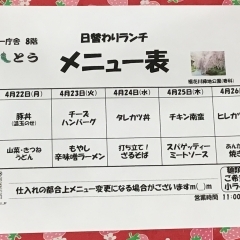 一庁舎 8階
日替わりランチ
しとう
メニュー表
4月22日(月) 4月23日(火) 4月24日(水) 4月25日(木) 4月26
豚丼 チーズ タレカツ丼 チキン南蛮 ヒレカ
(温玉のせ) ハンバーグ
山菜・きつね もやし 打ち立て! スパゲッティー
うどん 辛味噌ラーメン ざるそば ミートソース 焼き
仕入れの都合上メニュー変更になる場合がございますm(__)m
麺類
ご希
小ラ
営業時間 11:00